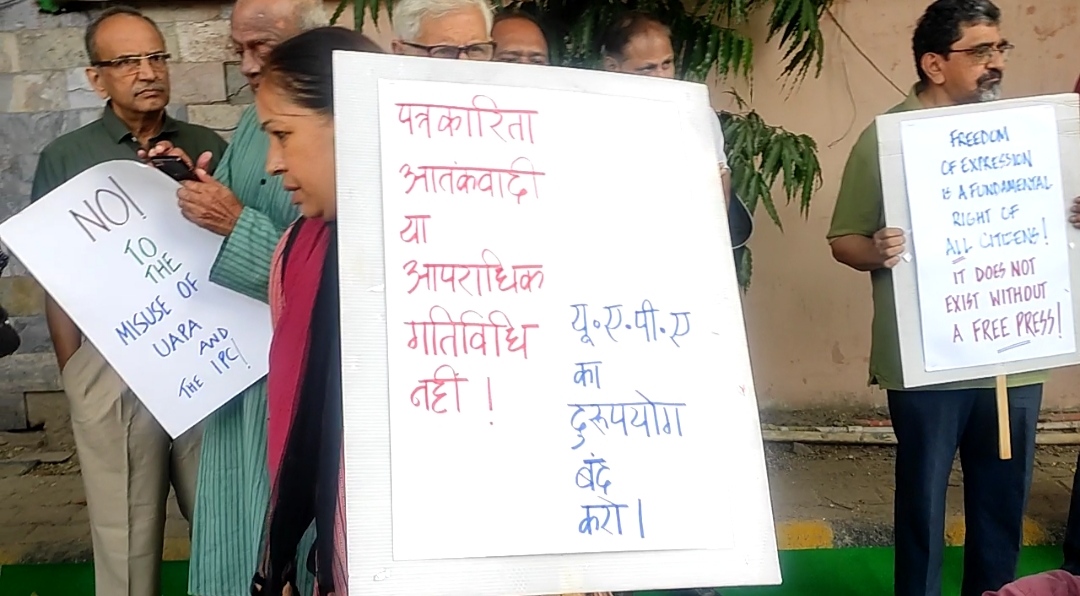 NO!
TO
THE
MISUSE OF
UAPA
AND
THE IPC!
पत्रकारिता
आतंकवादी
या
आपराधिक
गतिविधि
नहीं !
यू.ए.पी.ए
का
दुरुपयोग
बंद
करो।
FREEDOM
OF EXPRESSION
IS A FUNDAMENTAL
RIGHT OF
ALL CITIZENS!
IT DOES NOT
EXIST WITHOUT
A FREE PRESS!